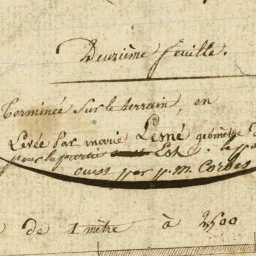 Deuxième feuille.
Terminée sur le terrain, en
Levée par marie Lesné géomètre
pour la partie Est. le
ouest par p. m. Cordes
de 1 mètre à 2500